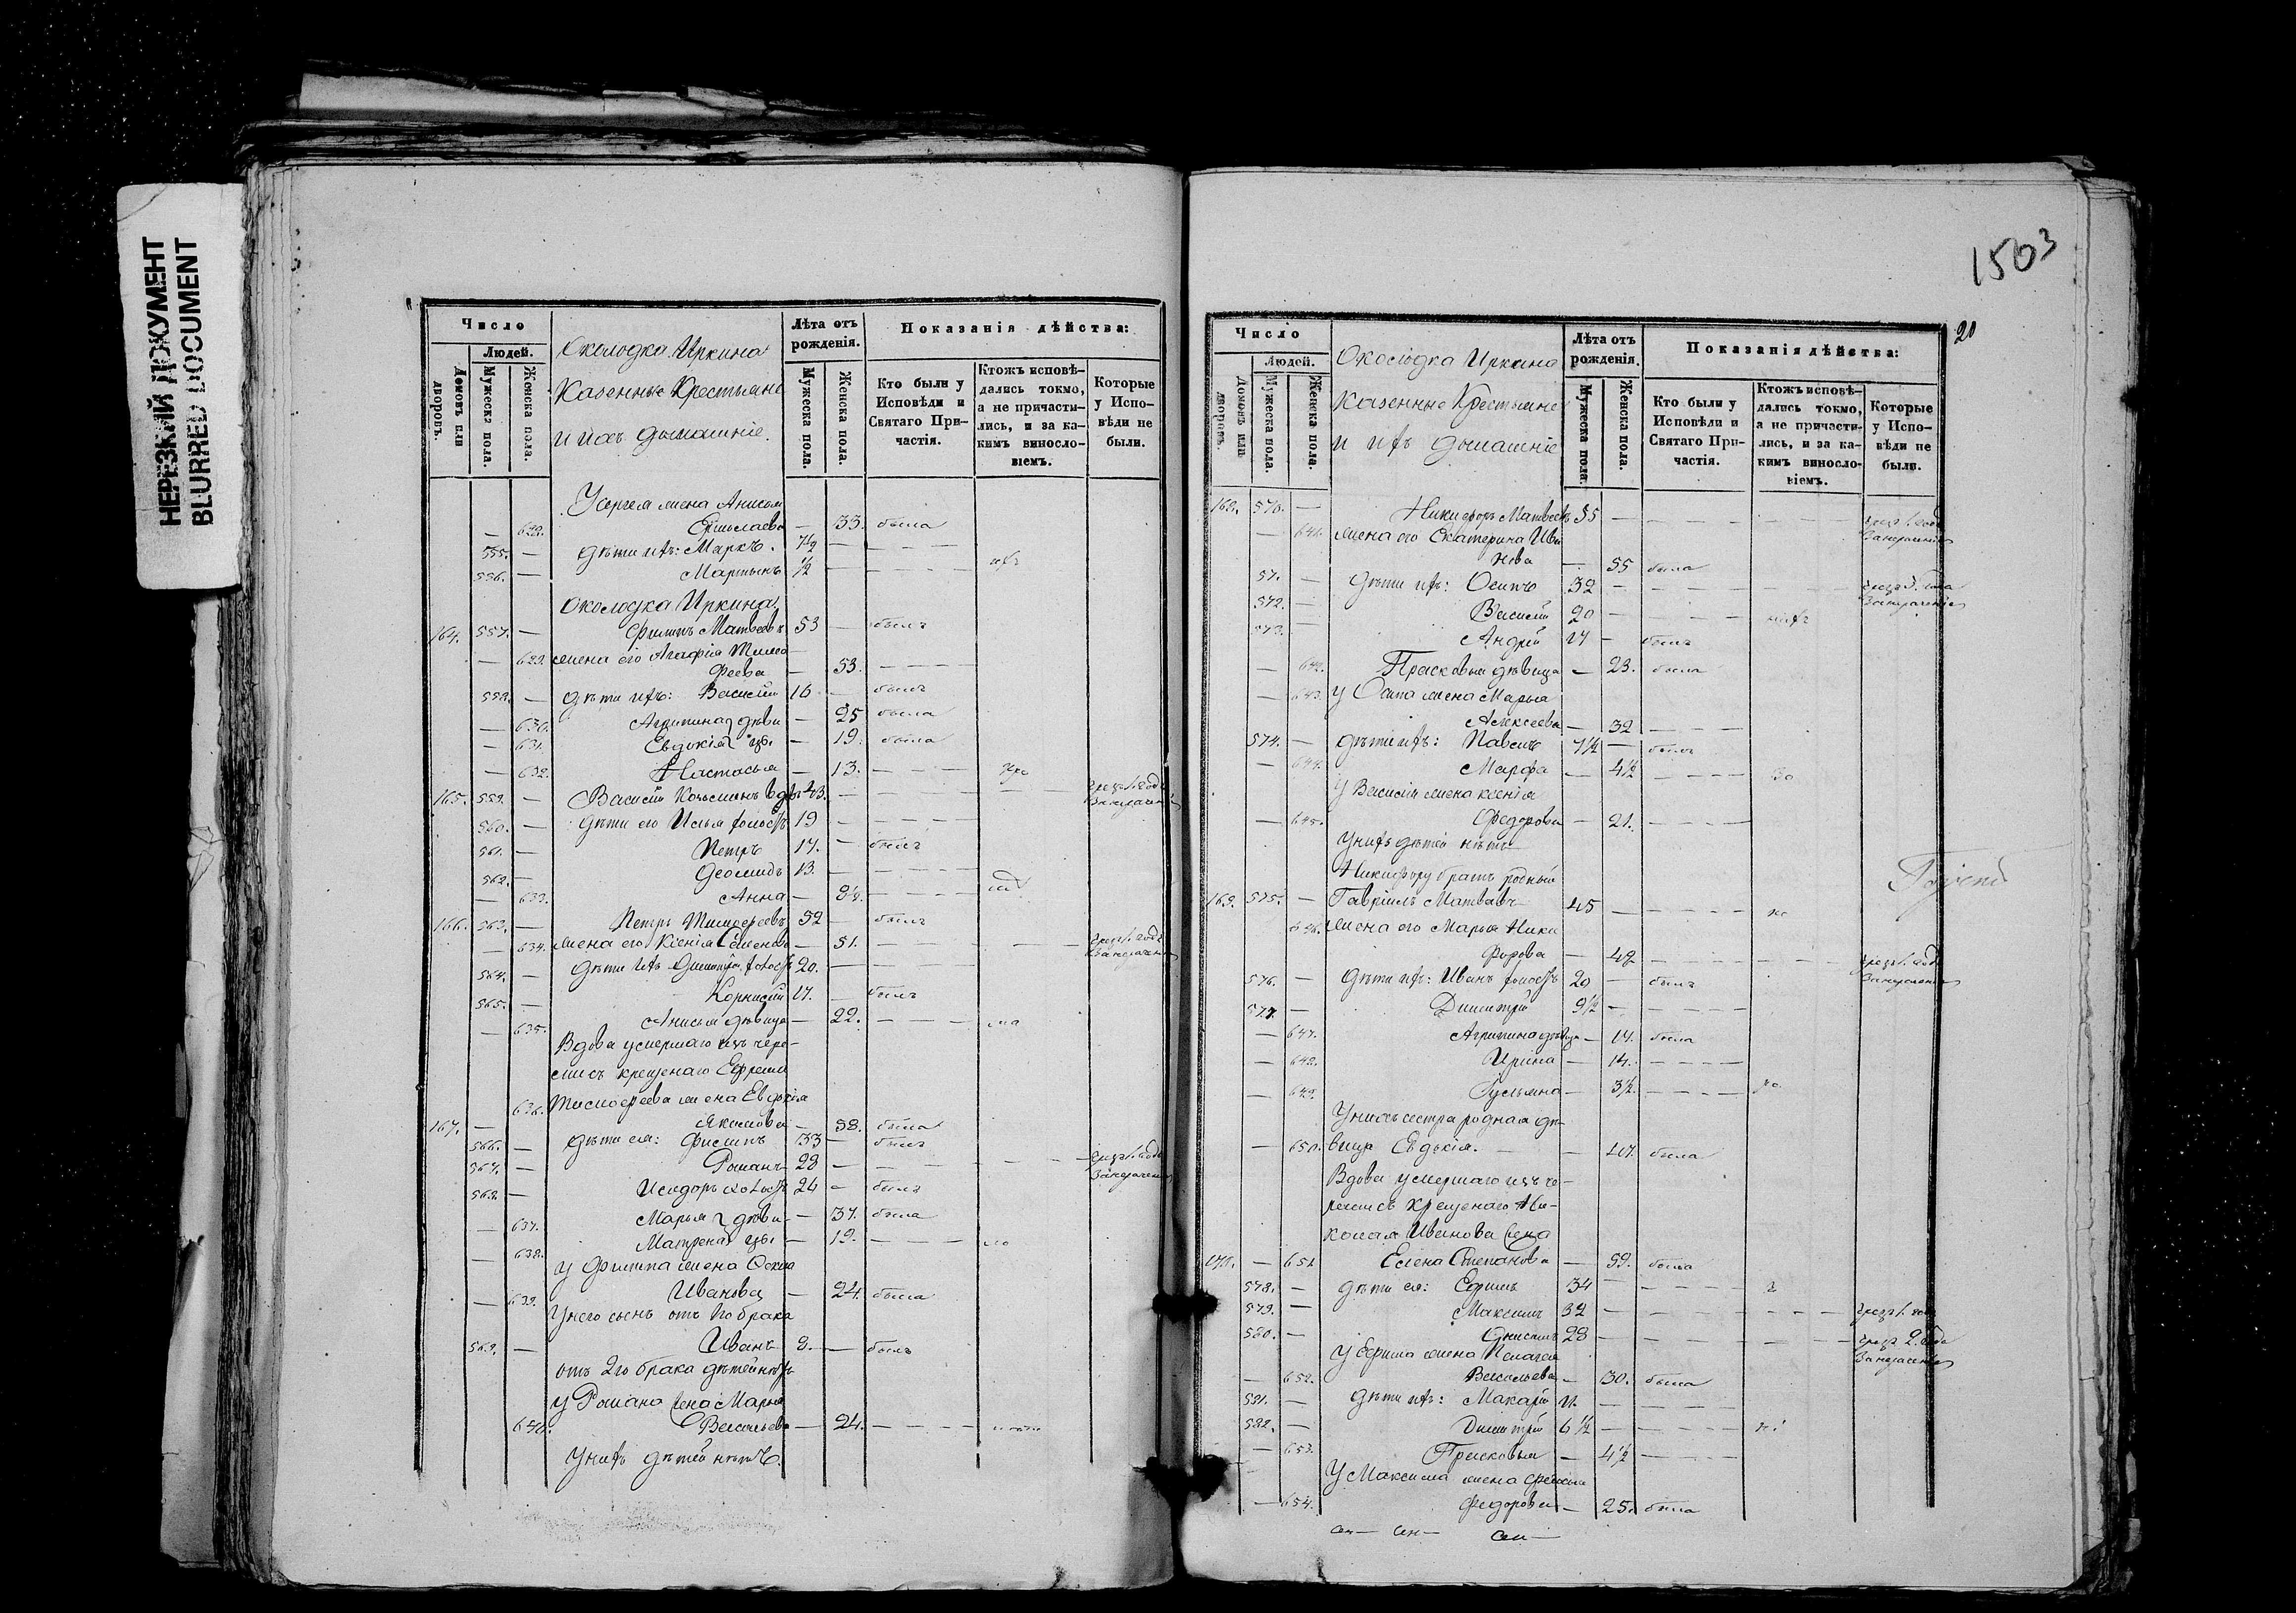 НЕРЕЗКИЙ ДОКУМЕНТ
BLURRED DOCUMENT
Число
Людей.
Домовъ или дворовъ.
Мужеска пола.
Женска пола.
Околодка Иркина
Казенные Крестьяне
и ихъ домашніе.
Лѣта отъ рожденія.
Мужеска пола.
Женска пола.
Показанія дѣйства:
Кто были у Исповѣди и Святаго Причастія.
Ктожъ исповѣдались токмо, а не причастились, и за какимъ винословіемъ.
Которые у Исповѣди не были.
У Сергея жена Анисья
— 628. Ермолаева — 33. была
555. — дѣти ихъ: Маркъ. 7 1/2 — — — —
556. — Мартынъ 1/2 — — — —
околодка Иркина.
164. 557. — Филипъ Матвеевъ 53 — былъ
— 629. жена его Агафія Тимо
феева — 53. — — —
558. — дѣти ихъ: Василій 16 — былъ
— 630. Агрипина дѣви — 25 была
— 631. Евдокія цы — 19. была
— 632. Настасья — 13. — — —
165. 559. — Василій Козьминъ вдвъ 43. — — — чрезъ 1. годъ
560. — дѣти его Илья холостъ 19 — — — —
561. — Петръ 17. — былъ
562. — Деомидъ 13. — — — —
— 633. Анна — 8 1/2. — — —
166. 563. — Петръ Тимофеевъ 52 — былъ
— 634. жена его Ксенія Семенова — 51. — — — чрезъ 1. годъ
564. — дѣти ихъ Димитрій холостъ 20. — — — —
565. — Корнилій 17. — былъ
— 635. Анисья дѣвица — 22. — — —
Вдова умершаго изъ чере-
мисъ крещенаго Ефрема
636. Тимофеева жена Евдокія
167. — Якимова — 58. была
566. — дѣти ея: Филипъ 33 — былъ
567. — Романъ 28 — — — — чрезъ 1. годъ
568. — Исидоръ холостъ 24 — былъ
— 637. Марья дѣви — 37. была
— 638. Матрена цы — 19. — — —
у Филипа жена Оекла
— 639. Иванова — 24. была
У него сынъ отъ 1го брака
569. — Иванъ 8. — былъ
отъ 2го брака дѣтей нѣтъ
у Романа жена Марья
640. Васильева — 24. — — —
У нихъ дѣтей нѣтъ.
1503
20
Число
Людей.
Домовъ или дворовъ.
Мужеска пола.
Женска пола.
Околодка Иркина
Казенные Крестьяне
и ихъ домашніе
Лѣта отъ рожденія.
Мужеска пола.
Женска пола.
Показанія дѣйства:
Кто были у Исповѣди и Святаго Причастія.
Ктожъ исповѣдались токмо, а не причастились, и за какимъ винословіемъ.
Которые у Исповѣди не были.
168. 570. — Никифоръ Матвеевъ 55 — — — — чрезъ 1. годъ
— 641. жена его Екатерина Ива
нова — 55 была
571. — дѣти ихъ: Осипъ 32 — — — — чрезъ 3. года
572. — Василій 20 — — — —
573. — Андрей 17 — былъ
— 642. Прасковья дѣвица — 23. была
— 643. у Осипа жена Марья
Алексеева — 32 — — —
574. — дѣти ихъ: Павелъ 7 1/2 — былъ
— 644. Марфа — 4 1/2 — — —
У Василія жена Ксенія
— 645. Федорова — 21. — — —
У нихъ дѣтей нѣтъ
Никифору братъ родный
169. 575. — Гавріилъ Матвеевъ 45 — — — —
646. жена его Марья Ники
форова — 48 — — — чрезъ 1. годъ
576. — дѣти ихъ: Иванъ холостъ 20 — былъ
577. — Димитрій 9 1/2 — — — —
— 647. Агрипина дѣвица — 17. была
— 648. Ирина — 14. — — —
— 649. Ульяна — 3 1/2. — — —
У нихъ сестра родная дѣ-
— 650. вица Евдокія. — 47. была
Вдова умершаго изъ че-
ремисъ крещенаго Ни-
колая Иванова жена
170. — 651. Елена Степанова — 59. была
578. — дѣти ея: Ефимъ 34 — — — —
579. — Максимъ 32 — — — — чрезъ 1. годъ
580. — Онисимъ 28 — — — — чрезъ 2. года
У Ефима жена Пелагея
— 652. Васильева — 30. была
581. — дѣти ихъ: Макарій 11. — — — —
582. — Димитрій 6 1/2 — — — —
— 653. Прасковья — 4 1/2 — — —
У Максима жена
— 654. Федорова — 25. была